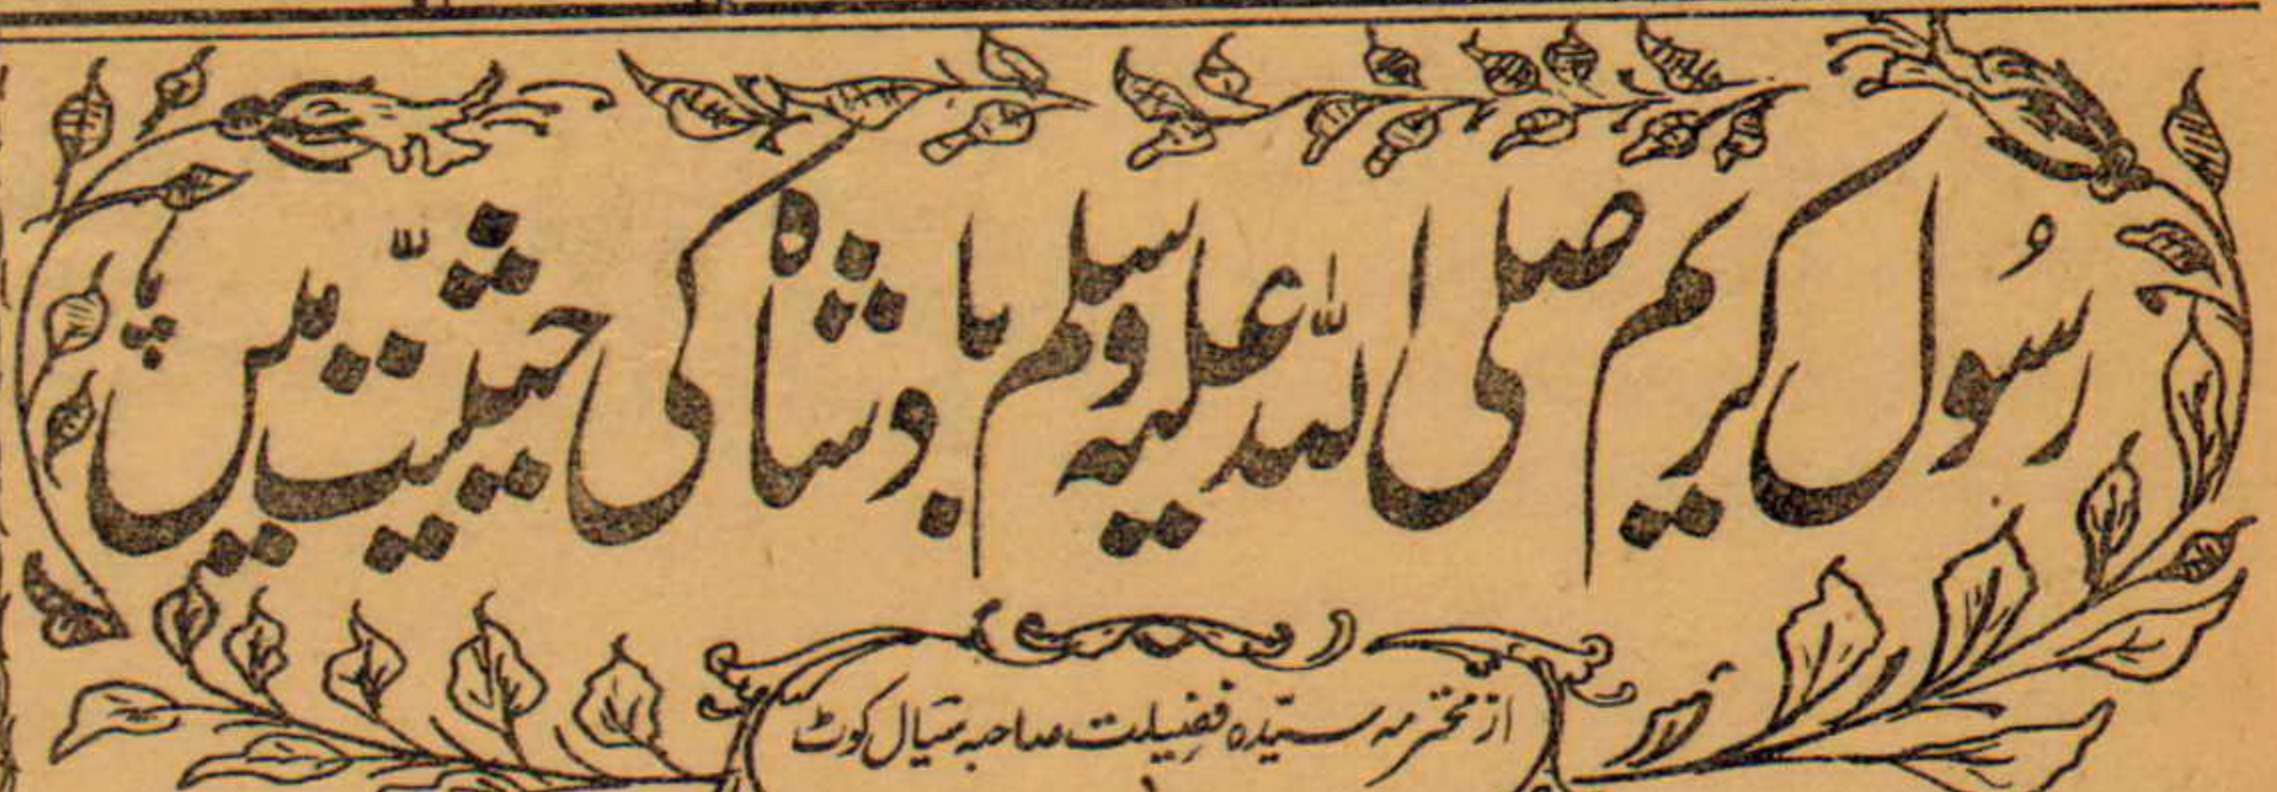 رسُول کریم صلی اللہ علیہ وسلم بادشاہ کی حیثیّت میں
از محترمہ سیّدہ فضیلت صاحبہ سیالکوٹ